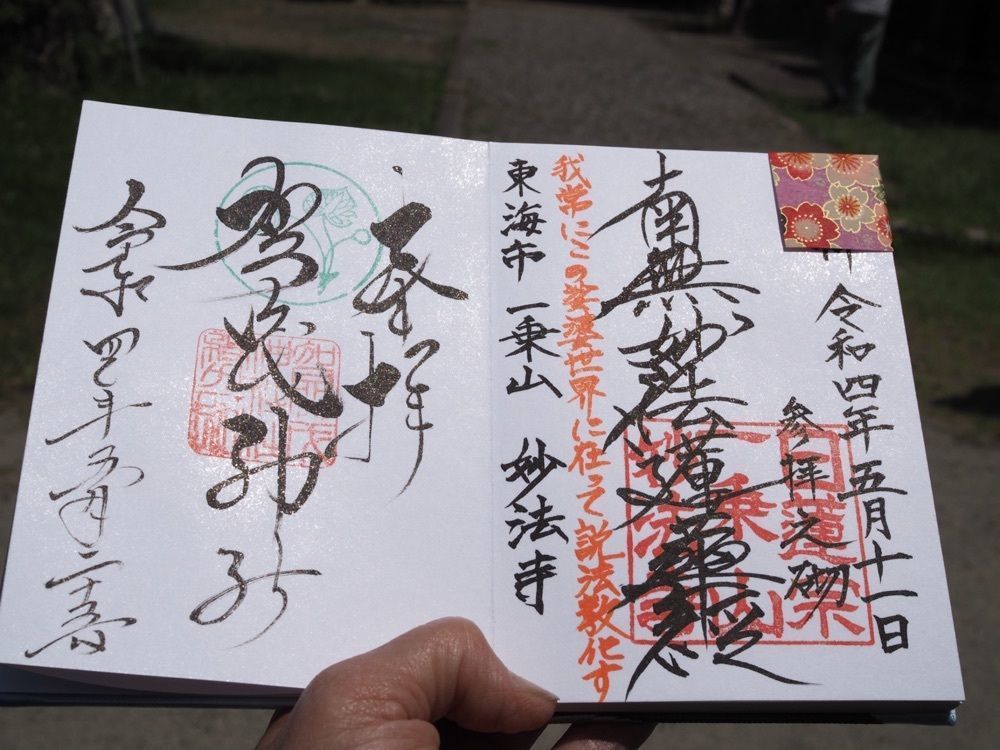 令和四年五月十一日
参拝之砌
南無妙法蓮華経
日蓮宗
一乗山
妙法寺
我常にこの娑婆世界に在って説法教化す
東海市 一乗山 妙法寺
奉拝
令和四年五月二十五日